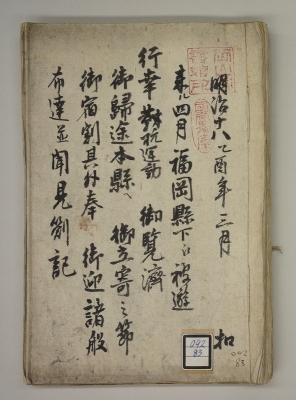 明治十八乙酉年三月
来ル四月福岡縣下ヘ被遊
行幸對抗運動御覧濟
御歸途本縣ヘ御立寄之節
御宿割其外奉御迎諸般
布達並聞見劄記
扣
042
83
042
83